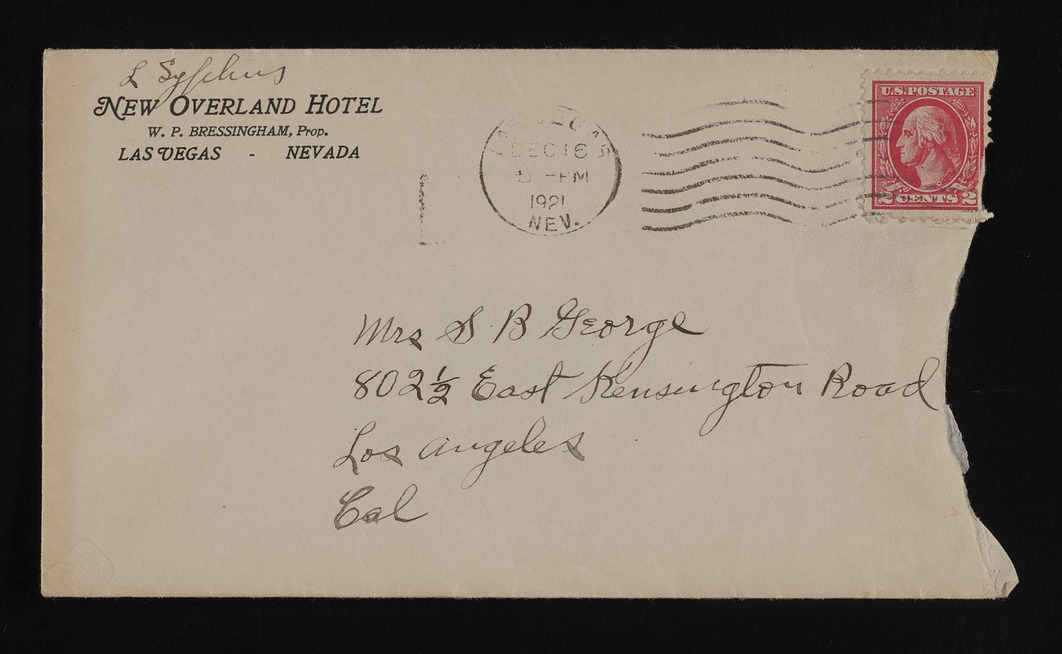 L Syphus
NEW OVERLAND HOTEL
W. P. BRESSINGHAM, Prop.
LAS VEGAS - NEVADA
LAS VEGAS
DEC 16
-PM
1921
NEV.
U.S. POSTAGE
2 CENTS 2
Mrs S B George
802 ½ East Kensington Road
Los Angeles
Cal